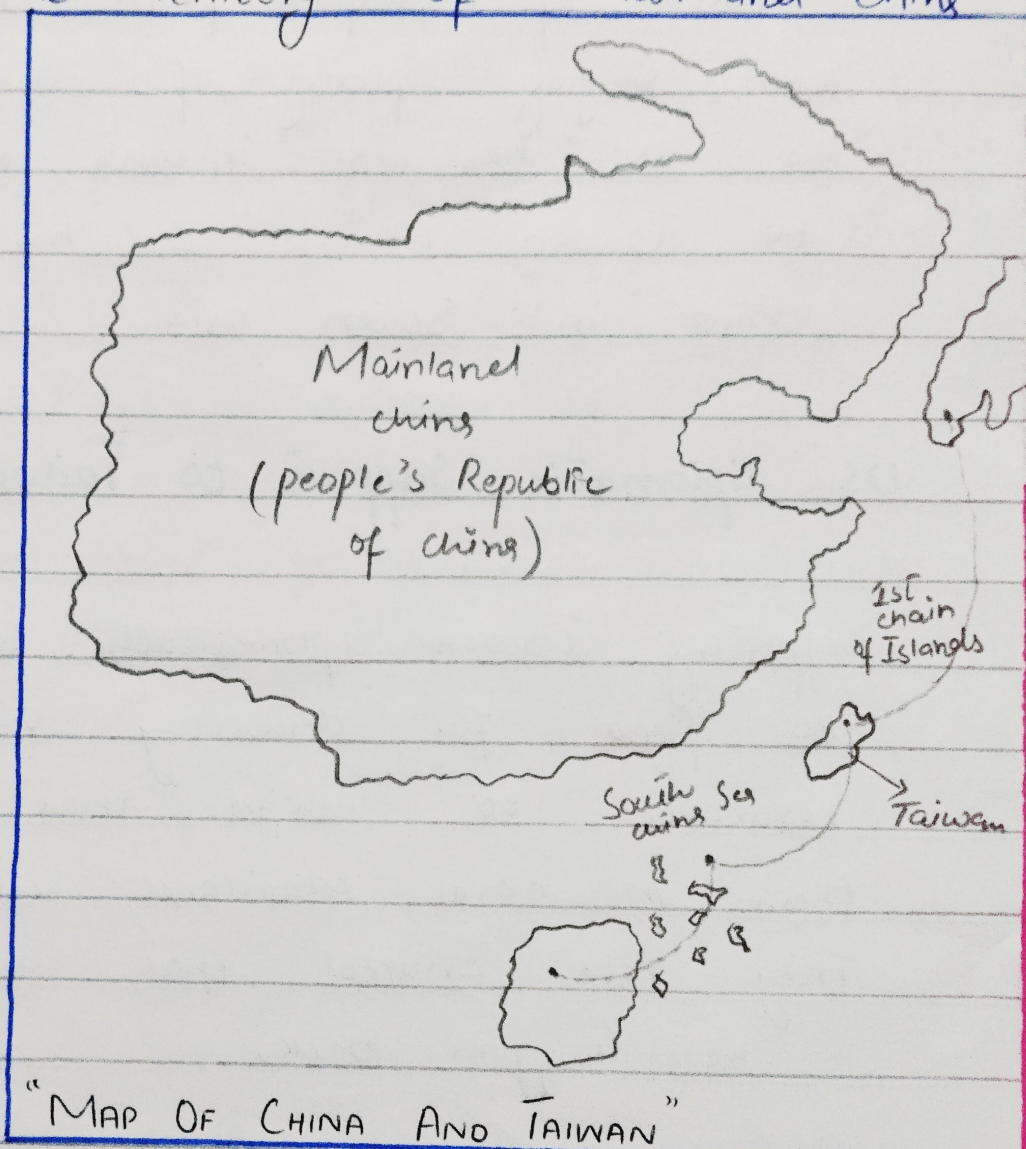 of and China
Mainland
China
(people's Republic
of China)
1st.
chain
of Islands
Taiwan
South Sea
China
"MAP OF CHINA AND TAIWAN"